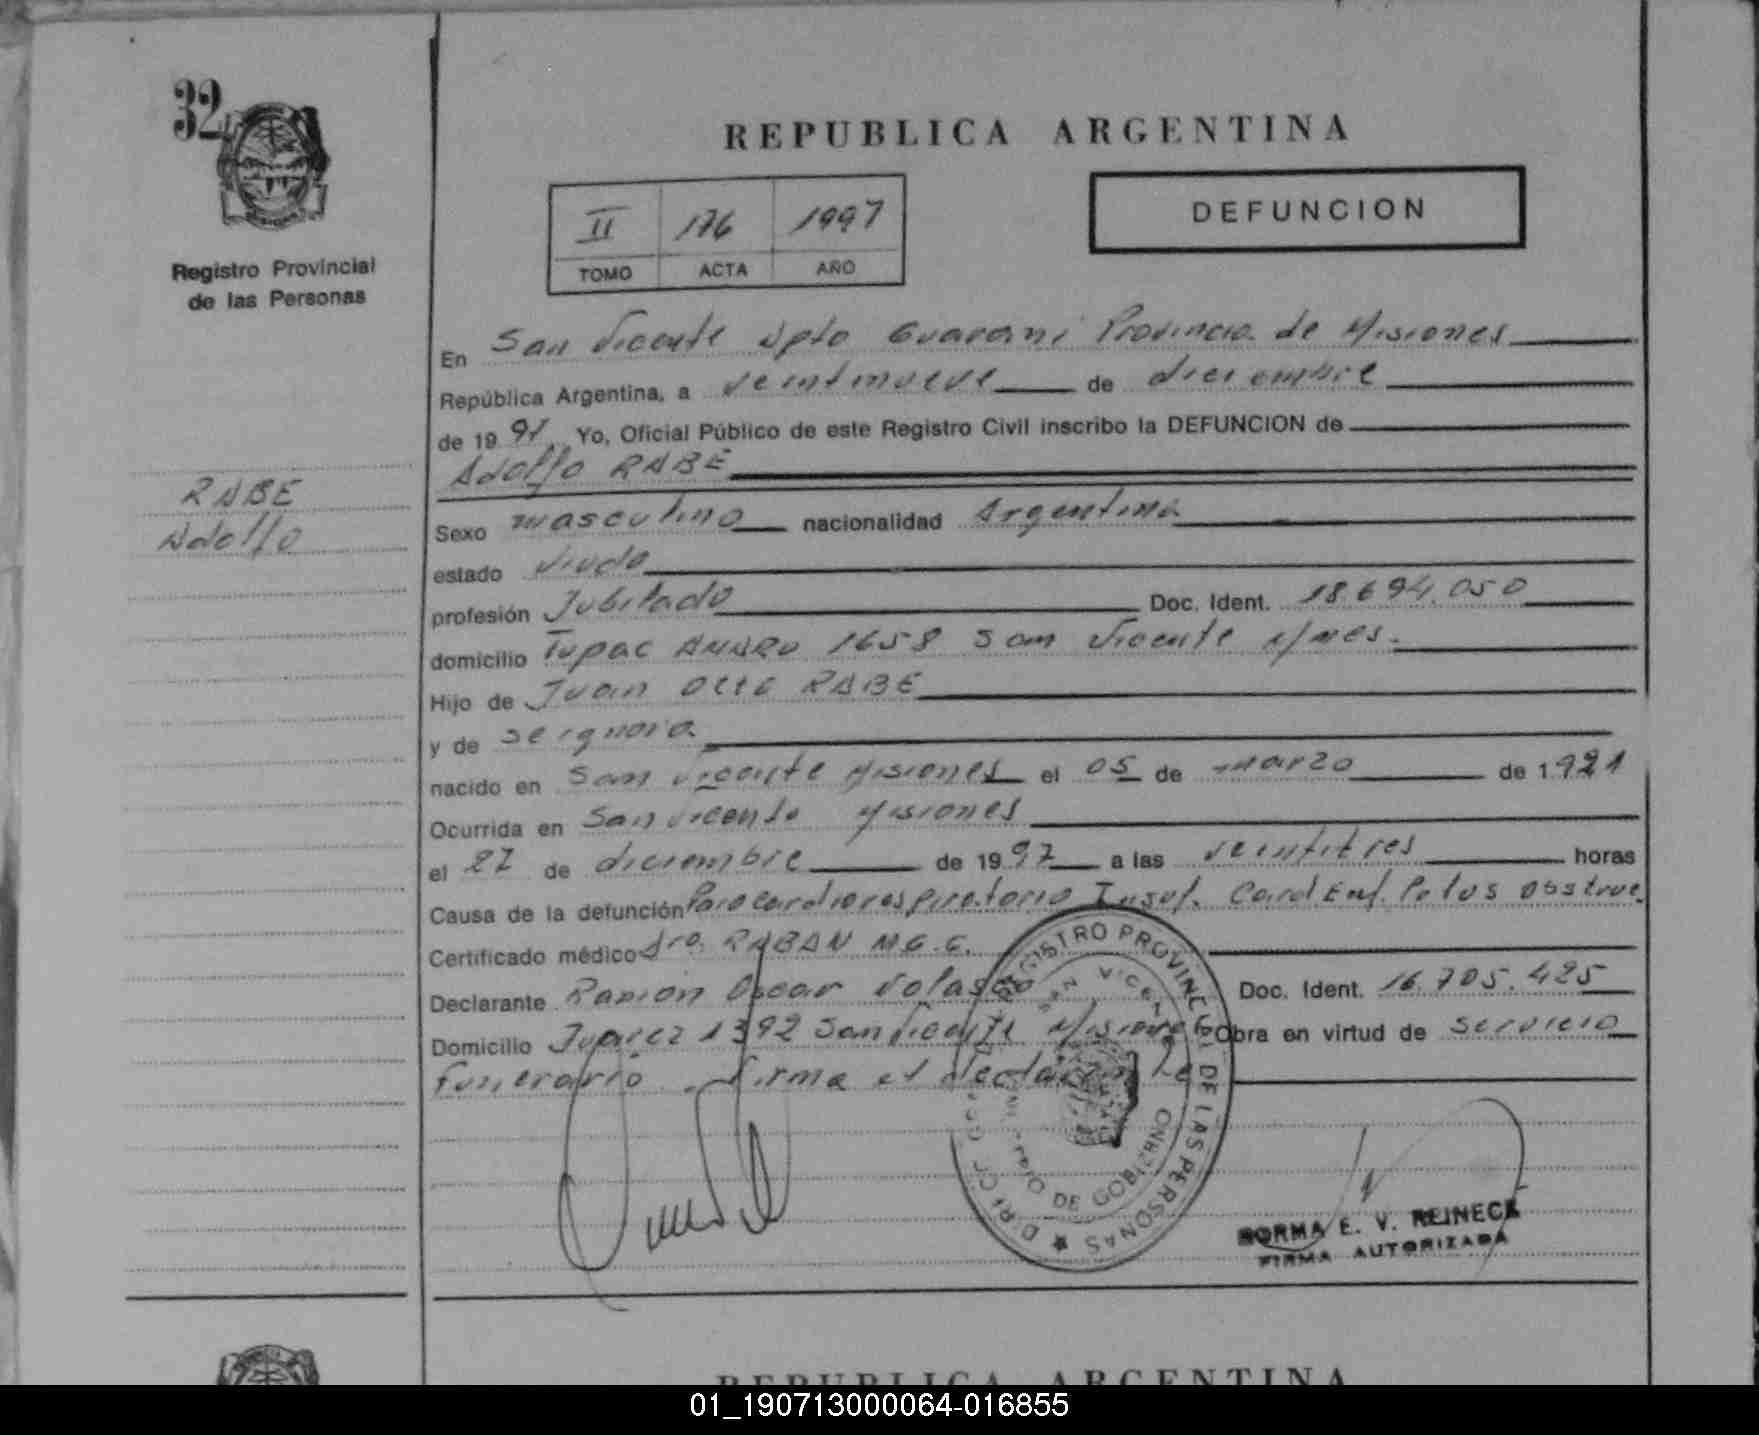 32
REPUBLICA ARGENTINA
II 176 1997
TOMO ACTA AÑO
DEFUNCION
Registro Provincial
de las Personas
RABE
Adolfo
En San Vicente Dpto Guarani Provincia de Misiones
República Argentina, a veintinueve de diciembre
de 19 97 Yo, Oficial Público de este Registro Civil inscribo la DEFUNCION de
Adolfo RABE
Sexo masculino nacionalidad Argentina
estado viudo
profesión Jubilado Doc. Ident. 18.694.050
domicilio Tupac AMARU 1658 San Vicente Mnes.
Hijo de Juan Otto RABE
y de se ignora
nacido en San Vicente Misiones el 05 de marzo de 1.921
Ocurrida en San Vicente Misiones
el 27 de diciembre de 19 97 a las veintitres horas
Causa de la defunción Paro cardiorespiratorio Insuf. Card Enf. Pulm Obstruc.
Certificado médico Dra. RABAN M.G.G.
Declarante Ramón Oscar Volasco Doc. Ident. 16.705.425
Domicilio Juarez 1392 San Vicente Misiones Obra en virtud de servicio
funerario. firma el declarante
REGISTRO PROVINCIAL DE LAS PERSONAS
SAN VICENTE
DE GOBIERNO
NORMA E. V. REINECK
FIRMA AUTORIZADA
REPUBLICA ARGENTINA
01_190713000064-016855